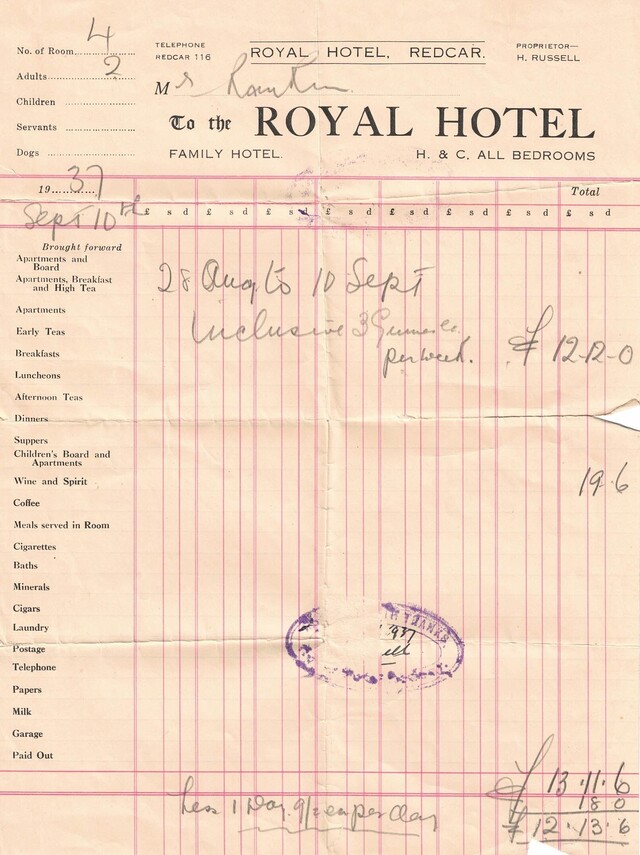 No. of Room 4
Adults 2
Children
Servants
Dogs
TELEPHONE
REDCAR 116
ROYAL HOTEL, REDCAR.
PROPRIETOR—
H. RUSSELL
Mr Rankin
To the ROYAL HOTEL
FAMILY HOTEL.
H. & C. ALL BEDROOMS
19 37
Total
Sept 10th
£ s d £ s d £ s d £ s d £ s d £ s d £ s d £ s d
Brought forward
Apartments and
Board
Apartments, Breakfast
and High Tea
28 Aug to 10 Sept
Apartments
Early Teas
Inclusive 3 Guineas
Breakfasts
per week. £ 12-12-0
Luncheons
Afternoon Teas
Dinners
Suppers
Children's Board and
Apartments
Wine and Spirit
19·6
Coffee
Meals served in Room
Cigarettes
Baths
Minerals
Cigars
Laundry
THANKS
1937
Postage
Telephone
Papers
Milk
Garage
Paid Out
£ 13·11·6
Less 1 Day 9/- ea per day
18 0
£ 12·13·6